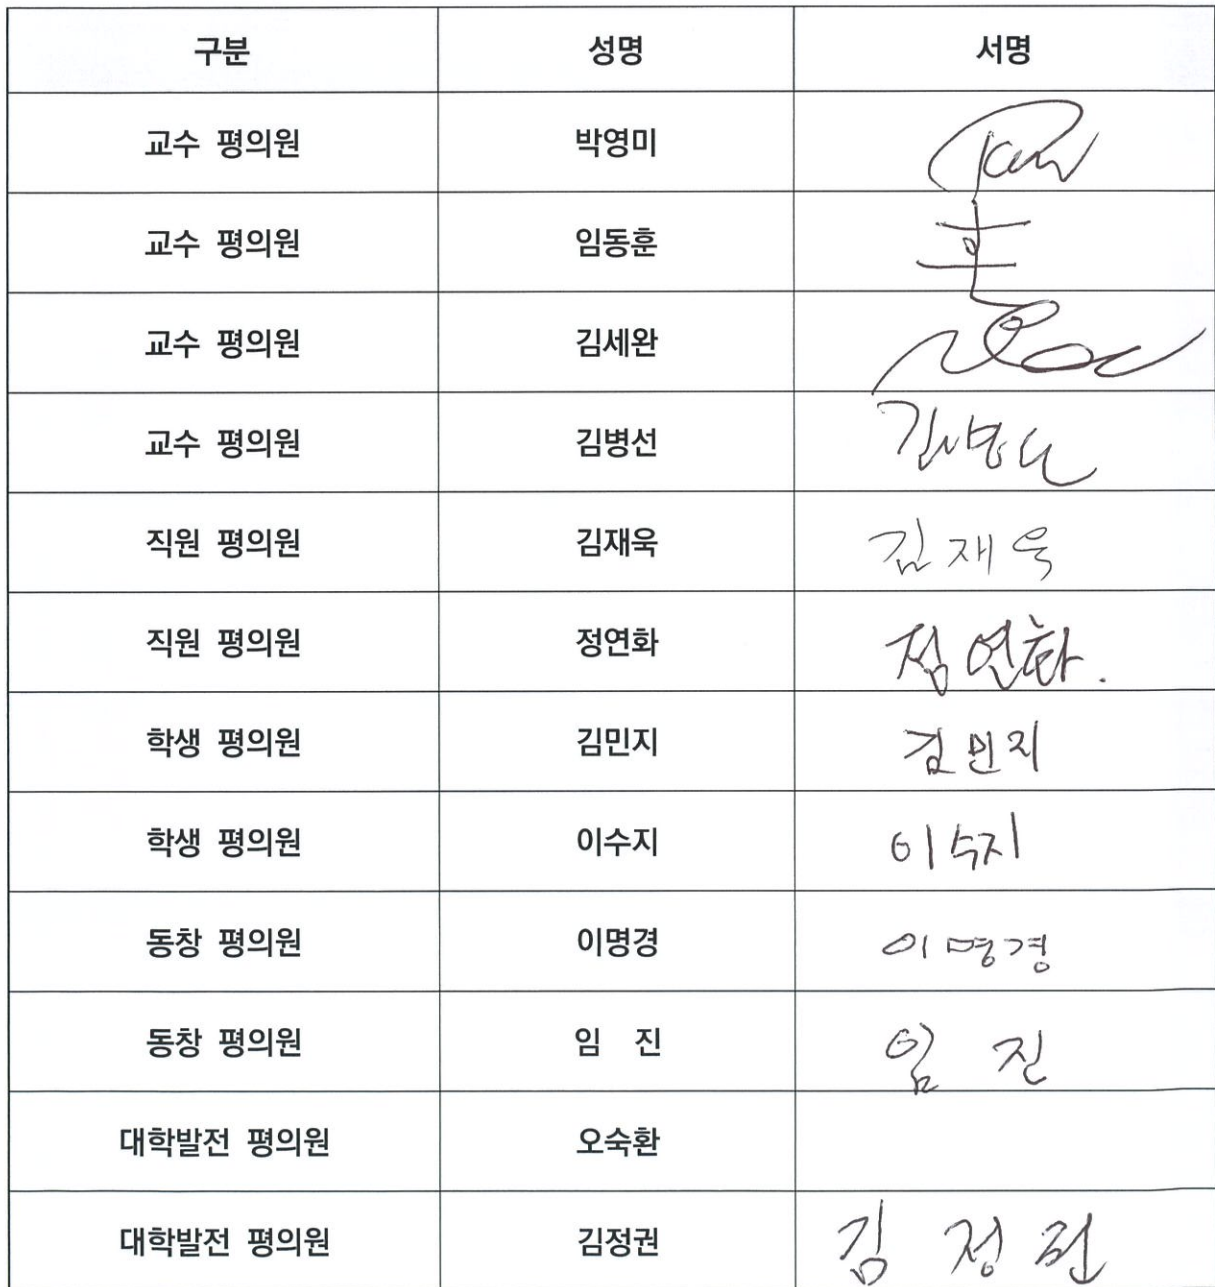 구분 성명 서명
교수 평의원 박영미
교수 평의원 임동훈 훈
교수 평의원 김세완
교수 평의원 김병선 김병선
직원 평의원 김재욱 김재욱
직원 평의원 정연화 정연화.
학생 평의원 김민지 김민지
학생 평의원 이수지 이수지
동창 평의원 이명경 이명경
동창 평의원 임 진 임 진
대학발전 평의원 오숙환
대학발전 평의원 김정권 김 정 권